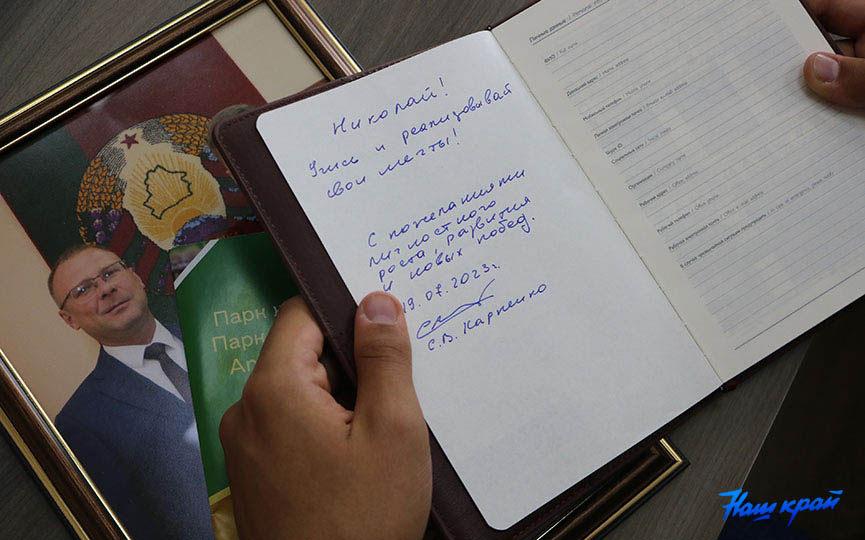 Николай!
Учись и реализовывай
свои мечты!
С пожеланиями
личностного
роста, развития
и новых побед.
19.07.2023г.
С.В. Карпенко
Парк
Парн
Личные данные / Personal data
ФИО / Full name
Домашний адрес / Home address
Мобильный телефон / Mobile phone
Личная электронная почта / Private e-mail address
Skype ID
Социальные сети / Social media
Организация / Company name
Рабочий адрес / Office address
Рабочий телефон / Office phone
Рабочая электронная почта / Office e-mail address
В случае чрезвычайной ситуации предупредить / In case of emergency, please notify
Наш край